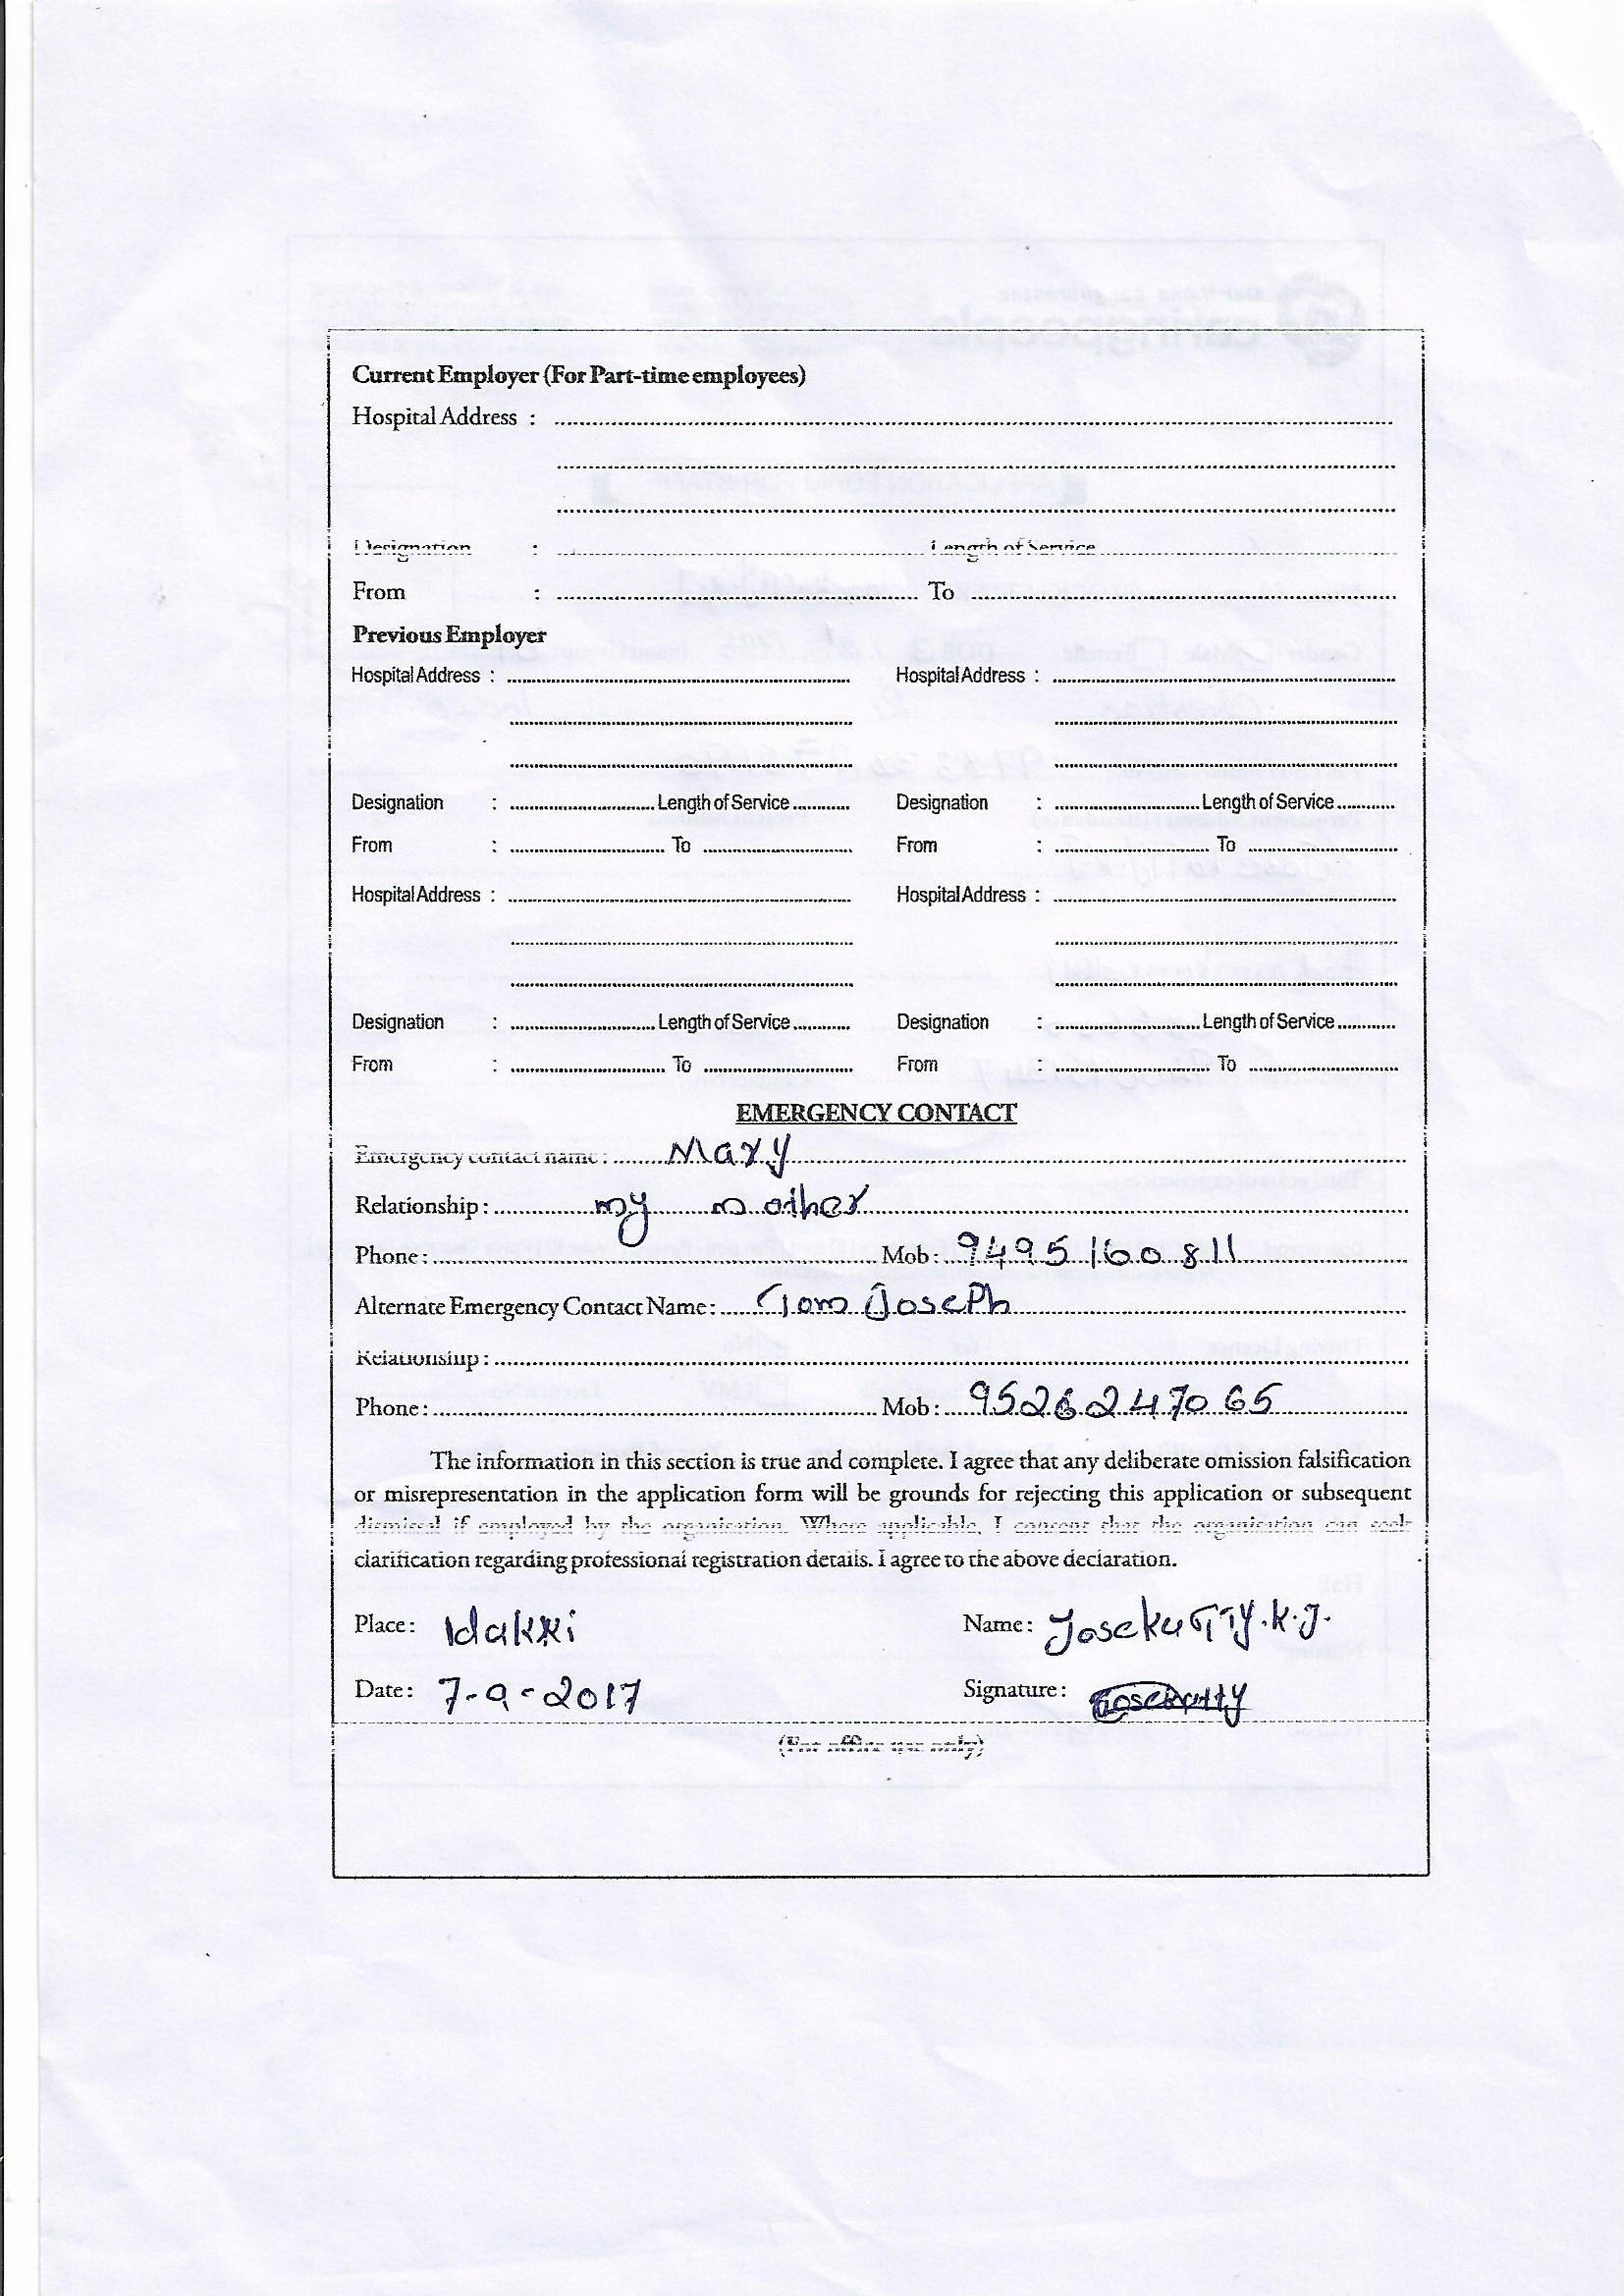 Current Employer (For Part-time employees)
Hospital Address :
Designation : Length of Service
From : To
Previous Employer
Hospital Address : Hospital Address :
Designation : Length of Service Designation : Length of Service
From : To From : To
Hospital Address : Hospital Address :
Designation : Length of Service Designation : Length of Service
From : To From : To
EMERGENCY CONTACT
Emergency contact name : Mary
Relationship : my mother
Phone : Mob : 9495160811
Alternate Emergency Contact Name : Tom Joseph
Relationship :
Phone : Mob : 9526247065
The information in this section is true and complete. I agree that any deliberate omission falsification
or misrepresentation in the application form will be grounds for rejecting this application or subsequent
dismissal if employed by the organisation. Where applicable, I consent that the organisation can seek
clarification regarding professional registration details. I agree to the above declaration.
Place : Idakki Name : JosekuTTy.K.J.
Date : 7-9-2017 Signature : Josekutty
(For office use only)